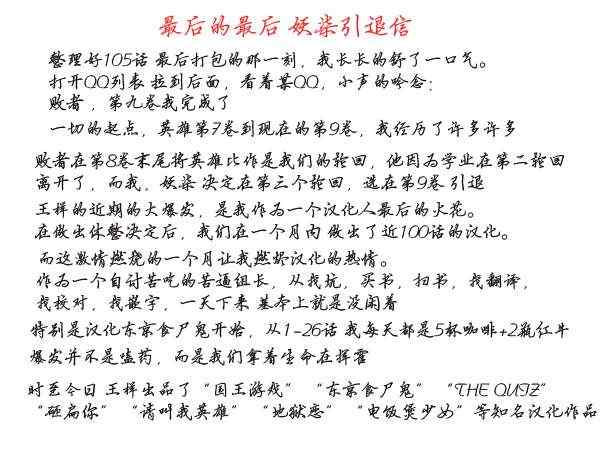 最后的最后 妖柒引退信
整理好105话 最后打包的那一刻，我长长的舒了一口气。
打开QQ列表 拉到后面，看着某QQ，小声的吟念：
败者，第九卷我完成了
一切的起点，英雄第7卷到现在的第9卷，我经历了许多许多
败者在第8卷末尾将英雄比作是我们的轮回，他因为学业在第二轮回
离开了，而我，妖柒 决定在第三个轮回，选在第9卷 引退
王样的近期的大爆发，是我作为一个汉化人最后的火花。
在做出休整决定后，我们在一个月内 做出了近100话的汉化。
而这激情燃烧的一个月让我燃烬汉化的热情。
作为一个自讨苦吃的苦逼组长，从我坑，买书，扫书，我翻译，
我校对，我嵌字，一天下来 基本上就是没闲着
特别是汉化东京食尸鬼开始，从1-26话 我每天都是5杯咖啡+2瓶红牛
爆发并不是嗑药，而是我们拿着生命在挥霍
时至今日 王样出品了“国王游戏” “东京食尸鬼” “THE QUIZ”
“砸扁你” “请叫我英雄” “地狱恋” “电饭煲少女”等知名汉化作品